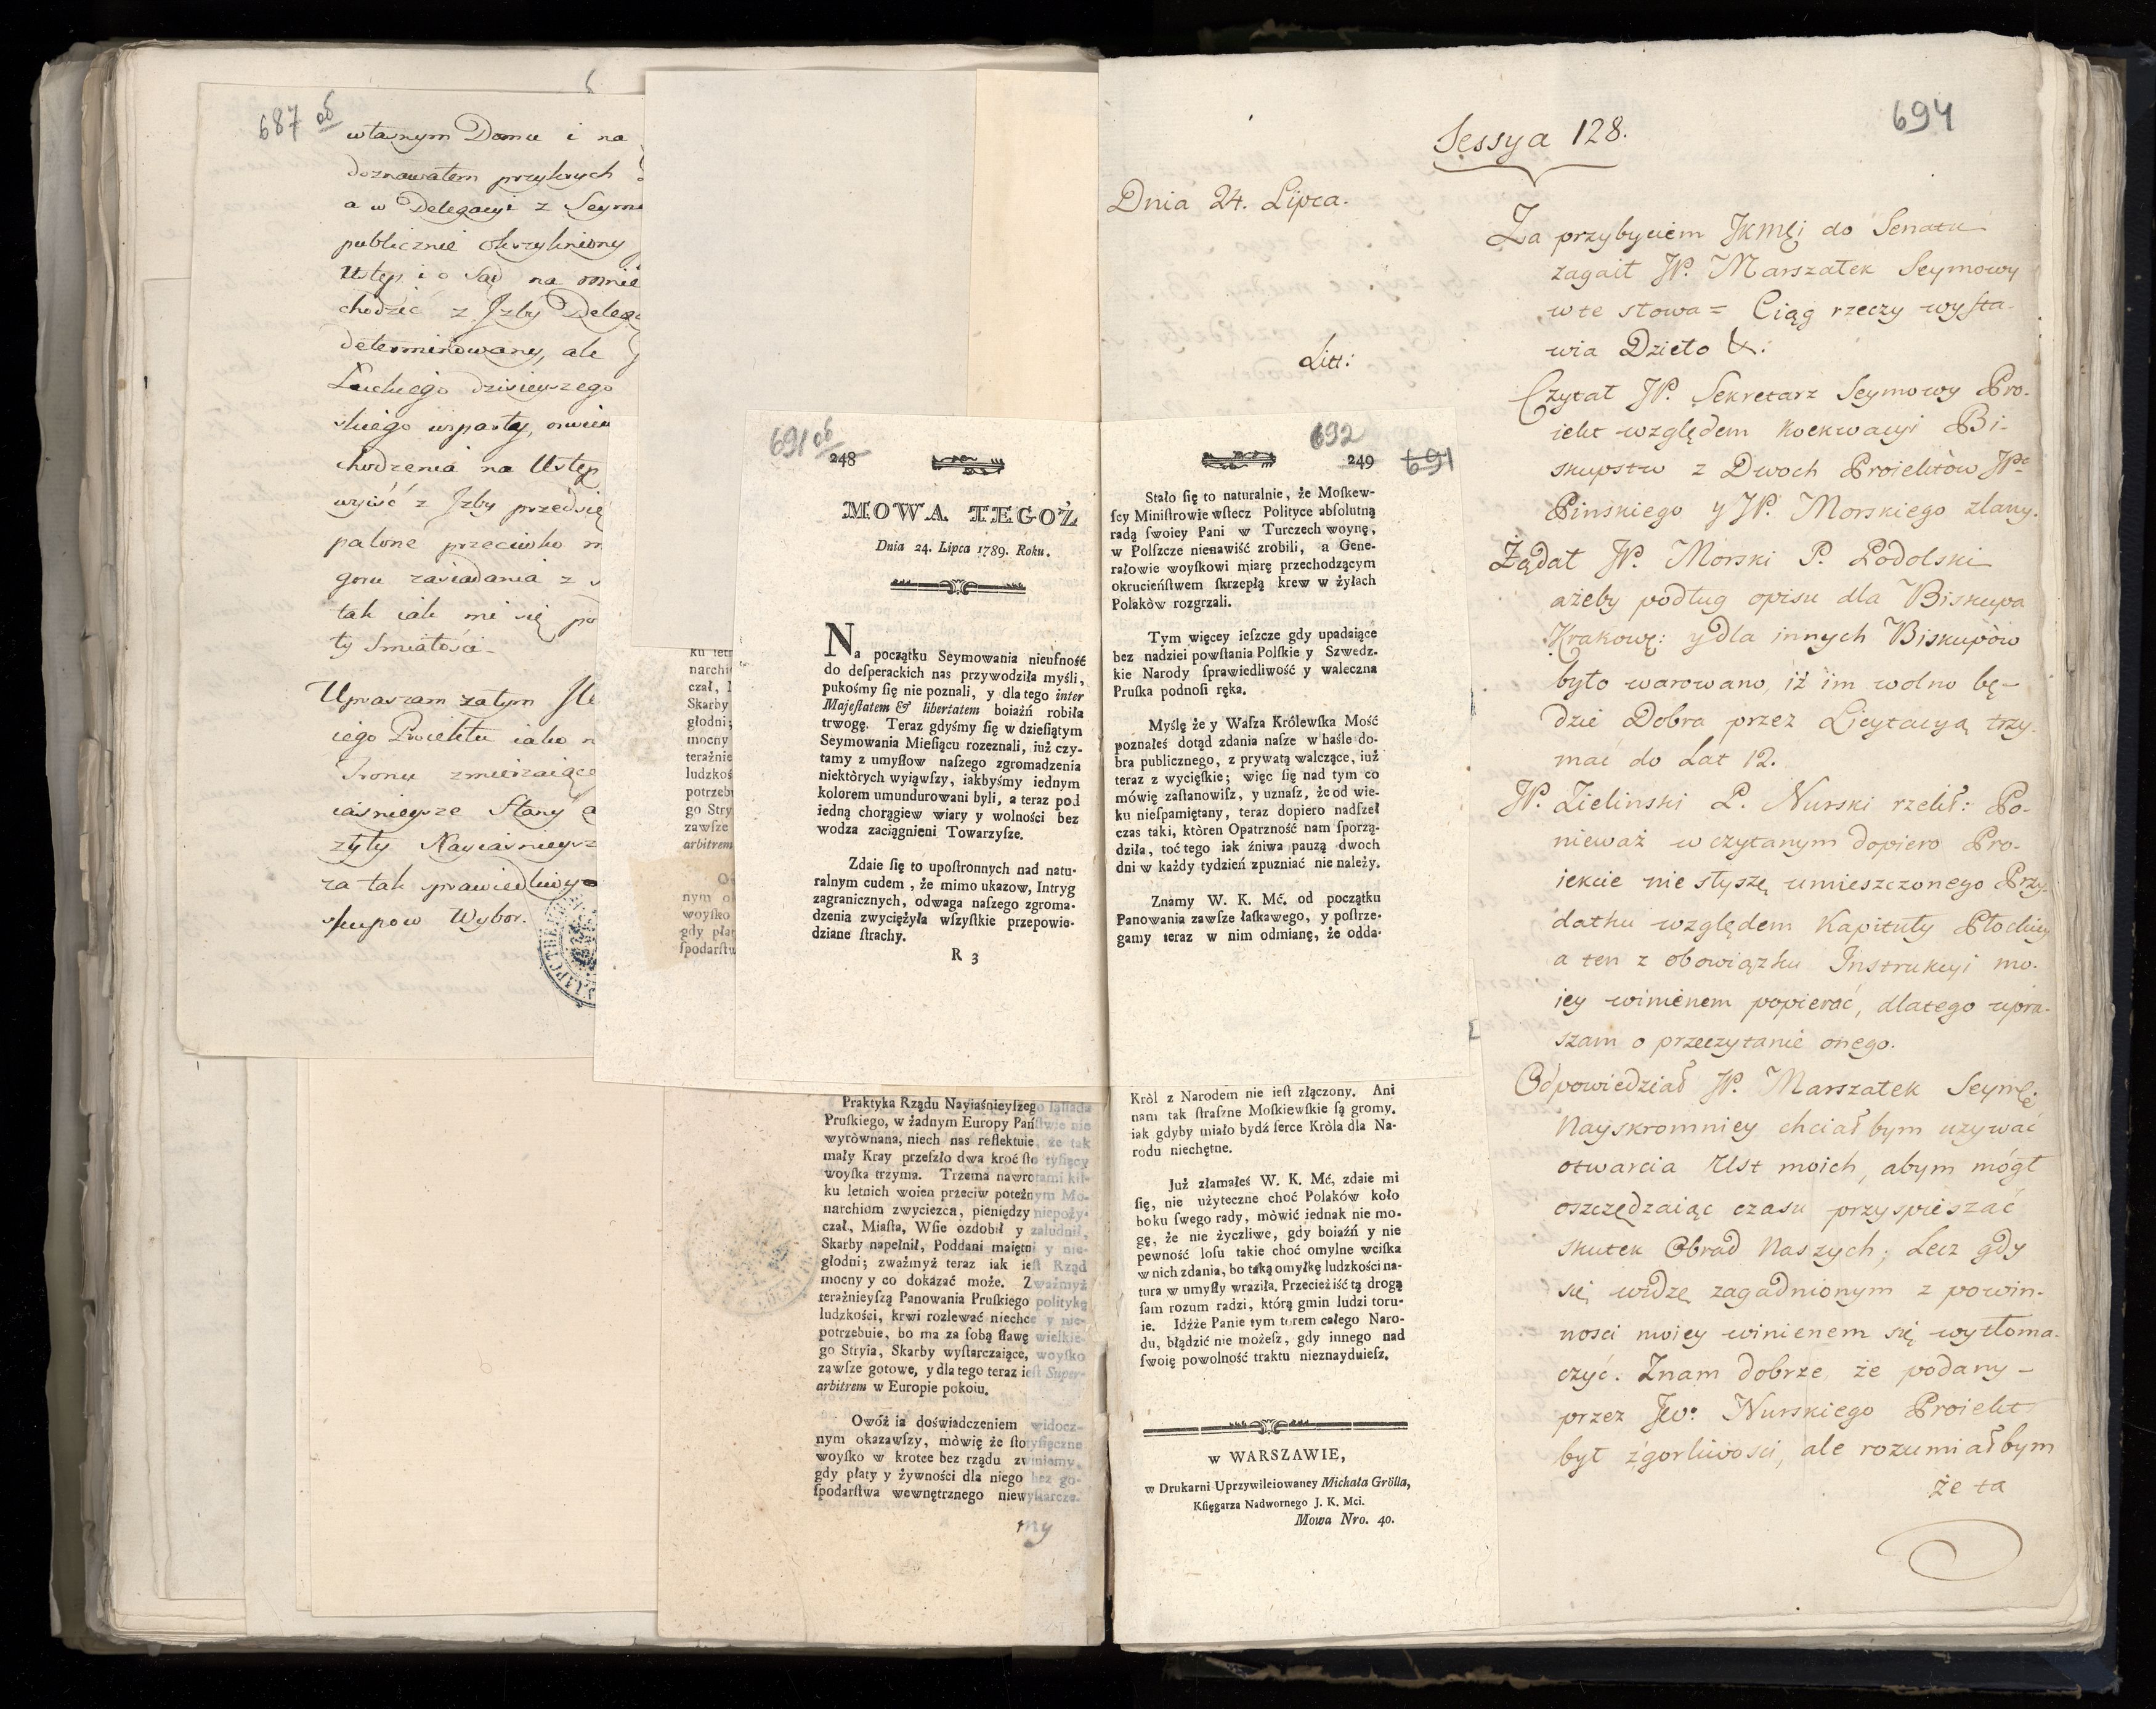 687 об
własnym Domu i na
doznawałem przykrych
a w Delegacyi z Seymu
publicznie okrzykniony
Ustęp i o Sąd na mnie
chodzić z Jzby Delega
determinowany, ale
Luckiego dzisieyszego
skiego wsparty,
chodzenia na Ustęp
wyiść z Jzby przedsię
palone przeciwko
goru zasiadania z
tak iak mi się po
ty Smiałości
Upraszam zatym
iego Proiektu iako
Tronu zmierzaiące
iaśnieysze Stany
żyły Nayiaśnieysz
za tak sprawiedliwy
skupow Wybor.
ku letn
narchi
czał,
Skarby
głodni;
mocny
teraźnie
ludzkoś
potrzebu
go Stry
zawſze
arbitrem
nym o
woyſko
gdy pła
ſpodarſtw
691 об
248
MOWA TEGOŻ
Dnia 24. Lipca 1789. Roku.
Na początku Seymowania nieufność
do deſperackich nas przywodziła myśli,
pukośmy ſię nie poznali, y dla tego inter
Majeſtatem & libertatem boiaźń robiła
trwogę. Teraz gdyśmy ſię w dzieſiątym
Seymowania Mieſiącu rozeznali, iuż czy-
tamy z umyſłow naſzego zgromadzenia
niektòrych wyiąwſzy, iakbyśmy iednym
kolorem umundurowani byli, a teraz pod
iedną chorągiew wiary y wolności bez
wodza zaciągnieni Towarzyſze.
Zdaie ſię to upoſtronnych nad natu-
ralnym cudem, że mimo ukazow, Intryg
zagranicznych, odwaga naſzego zgroma-
dzenia zwyciężyła wſzyſtkie przepowie-
dziane ſtrachy.
R 3
Praktyka Rządu Nayiaśnieyſzego ſąſiada
Pruſkiego, w żadnym Europy Pańſtwie nie
wyròwnana, niech nas reflektuie, że tak
mały Kray przeſzło dwa kroć ſto tyſięcy
woyſka trzyma. Trzema nawrotami kil-
ku letnich woien przeciw potężnym Mo-
narchiom zwycięzca, pieniędzy niepoży-
czał, Miaſta, Wſie ozdobił y zaludnił,
Skarby napełnił, Poddani maiętni y nie-
głodni; zważmyż teraz iak ieſt Rząd
mocny y co dokazać może. Zważmyż
teraźnieyſzą Panowania Pruſkiego politykę
ludzkości, krwi rozlewać niechce y nie-
potrzebuie, bo ma za ſobą ſławę wielkie-
go Stryia, Skarby wyſtarczaiące, woyſko
zawſze gotowe, y dla tego teraz ieſt Super-
arbitrem w Europie pokoiu.
Owóż ia doświadczeniem widocz-
nym okazawſzy, mòwię że ſtotyſięczne
woyſko w krotce bez rządu zwiniemy,
gdy płaty y żywności dla niego bez go-
ſpodarſtwa wewnętrznego niewyſtarcze.
my
692
249
691
Stało ſię to naturalnie, że Moſkew-
ſcy Miniſtrowie wſtecz Polityce abſolutną
radą ſwoiey Pani w Turczech woynę,
w Polſzcze nienawiść zrobili, a Gene-
rałowie woyſkowi miarę przechodzącym
okrucieńſtwem ſkrzepłą krew w żyłach
Polakòw rozgrzali.
Tym więcey ieſzcze gdy upadaiące
bez nadziei powſtania Polſkie y Szwedz-
kie Narody ſprawiedliwość y waleczna
Pruſka podnoſi ręka.
Myślę że y Waſza Królewſka Mość
poznałeś dotąd zdania naſze w haśle do-
bra publicznego, z prywatą walczące, iuż
teraz z wycięſkie; więc ſię nad tym co
mówię zaſtanowiſz, y uznaſz, że od wie-
ku nieſpamiętany, teraz dopiero nadſzeł
czas taki, ktòren Opatrzność nam ſporzą-
dziła, toć tego iak źniwa pauzą dwoch
dni w każdy tydzień zpuzniać nie należy.
Znamy W. K. Mć. od początku
Panowania zawſze łaſkawego, y poſtrze-
gamy teraz w nim odmianę, że odda-
Kròl z Narodem nie ieſt złączony. Ani
nam tak ſtraſzne Moſkiewſkie ſą gromy,
iak gdyby miało bydź ſerce Kròla dla Na-
rodu niechętne.
Już złamałeś W. K. Mć, zdaie mi
ſię, nie użyteczne choć Polaków koło
boku ſwego rady, mòwić iednak nie mo-
gę, że nie życzliwe, gdy boiaźń y nie
pewność loſu takie choć omylne wciſka
w nich zdania, bo taką omyłkę ludzkości na-
tura w umyſły wraziła. Przecież iść tą drogą
ſam rozum radzi, którą gmin ludzi toru-
ie. Idźże Panie tym torem całego Naro-
du, błądzić nie możeſz, gdy innego nad
ſwoię powolność traktu nieznayduieſz.
w WARSZAWIE,
w Drukarni Uprzywileiowaney Michała Grölla,
Kſięgarza Nadwornego J. K. Mci.
Mowa Nro. 40.
694
Sessya 128.
Dnia 24. Lipca.
Litt:
Za przybyciem JKMci do Senatu
zagaił JP. Marszałek Seymowy
w te słowa = Ciąg rzeczy wysta-
wia Dzieło &:
Czytał JP. Sekretarz Seymowy Pro-
iekt względem Koekwacyi Bi-
skupstw z Dwoch Proiektòw JPa
Pinskiego y JP. Morskiego zlany.
Żądał JP. Morski P. Podolski
ażeby podług opisu dla Biskupa
Krakowę: y dla innych Biskupòw
było warowano, iż im wolno bę-
dzie Dobra przez Licytacyą trzy-
mać do Lat 12.
JP. Zielinski P. Nurski rzekł: Po-
nieważ w czytanym dopiero Pro-
iekcie nie słyszę umieszczonego Przy-
datku względem Kapituły Płockiey
a ten z obowiązku Instrukcyi mo-
iey winienem popierać, dlatego upra-
szam o przeczytanie onego.
Odpowiedział JP. Marszałek Seymę.
Nayskromniey chciałbym używać
otwarcia Ust moich, abym mógł
oszczędzaiąc czasu przyspieszać
skutek Obrad Naszych; Lecz gdy
się widzę zagadnionym z powin-
ności moiey winienem się wytłoma-
czyć. Znam dobrze, że podany
przez Jwo Nurskiego Proiekt
był z gorliwości, ale rozumiałbym
że ta